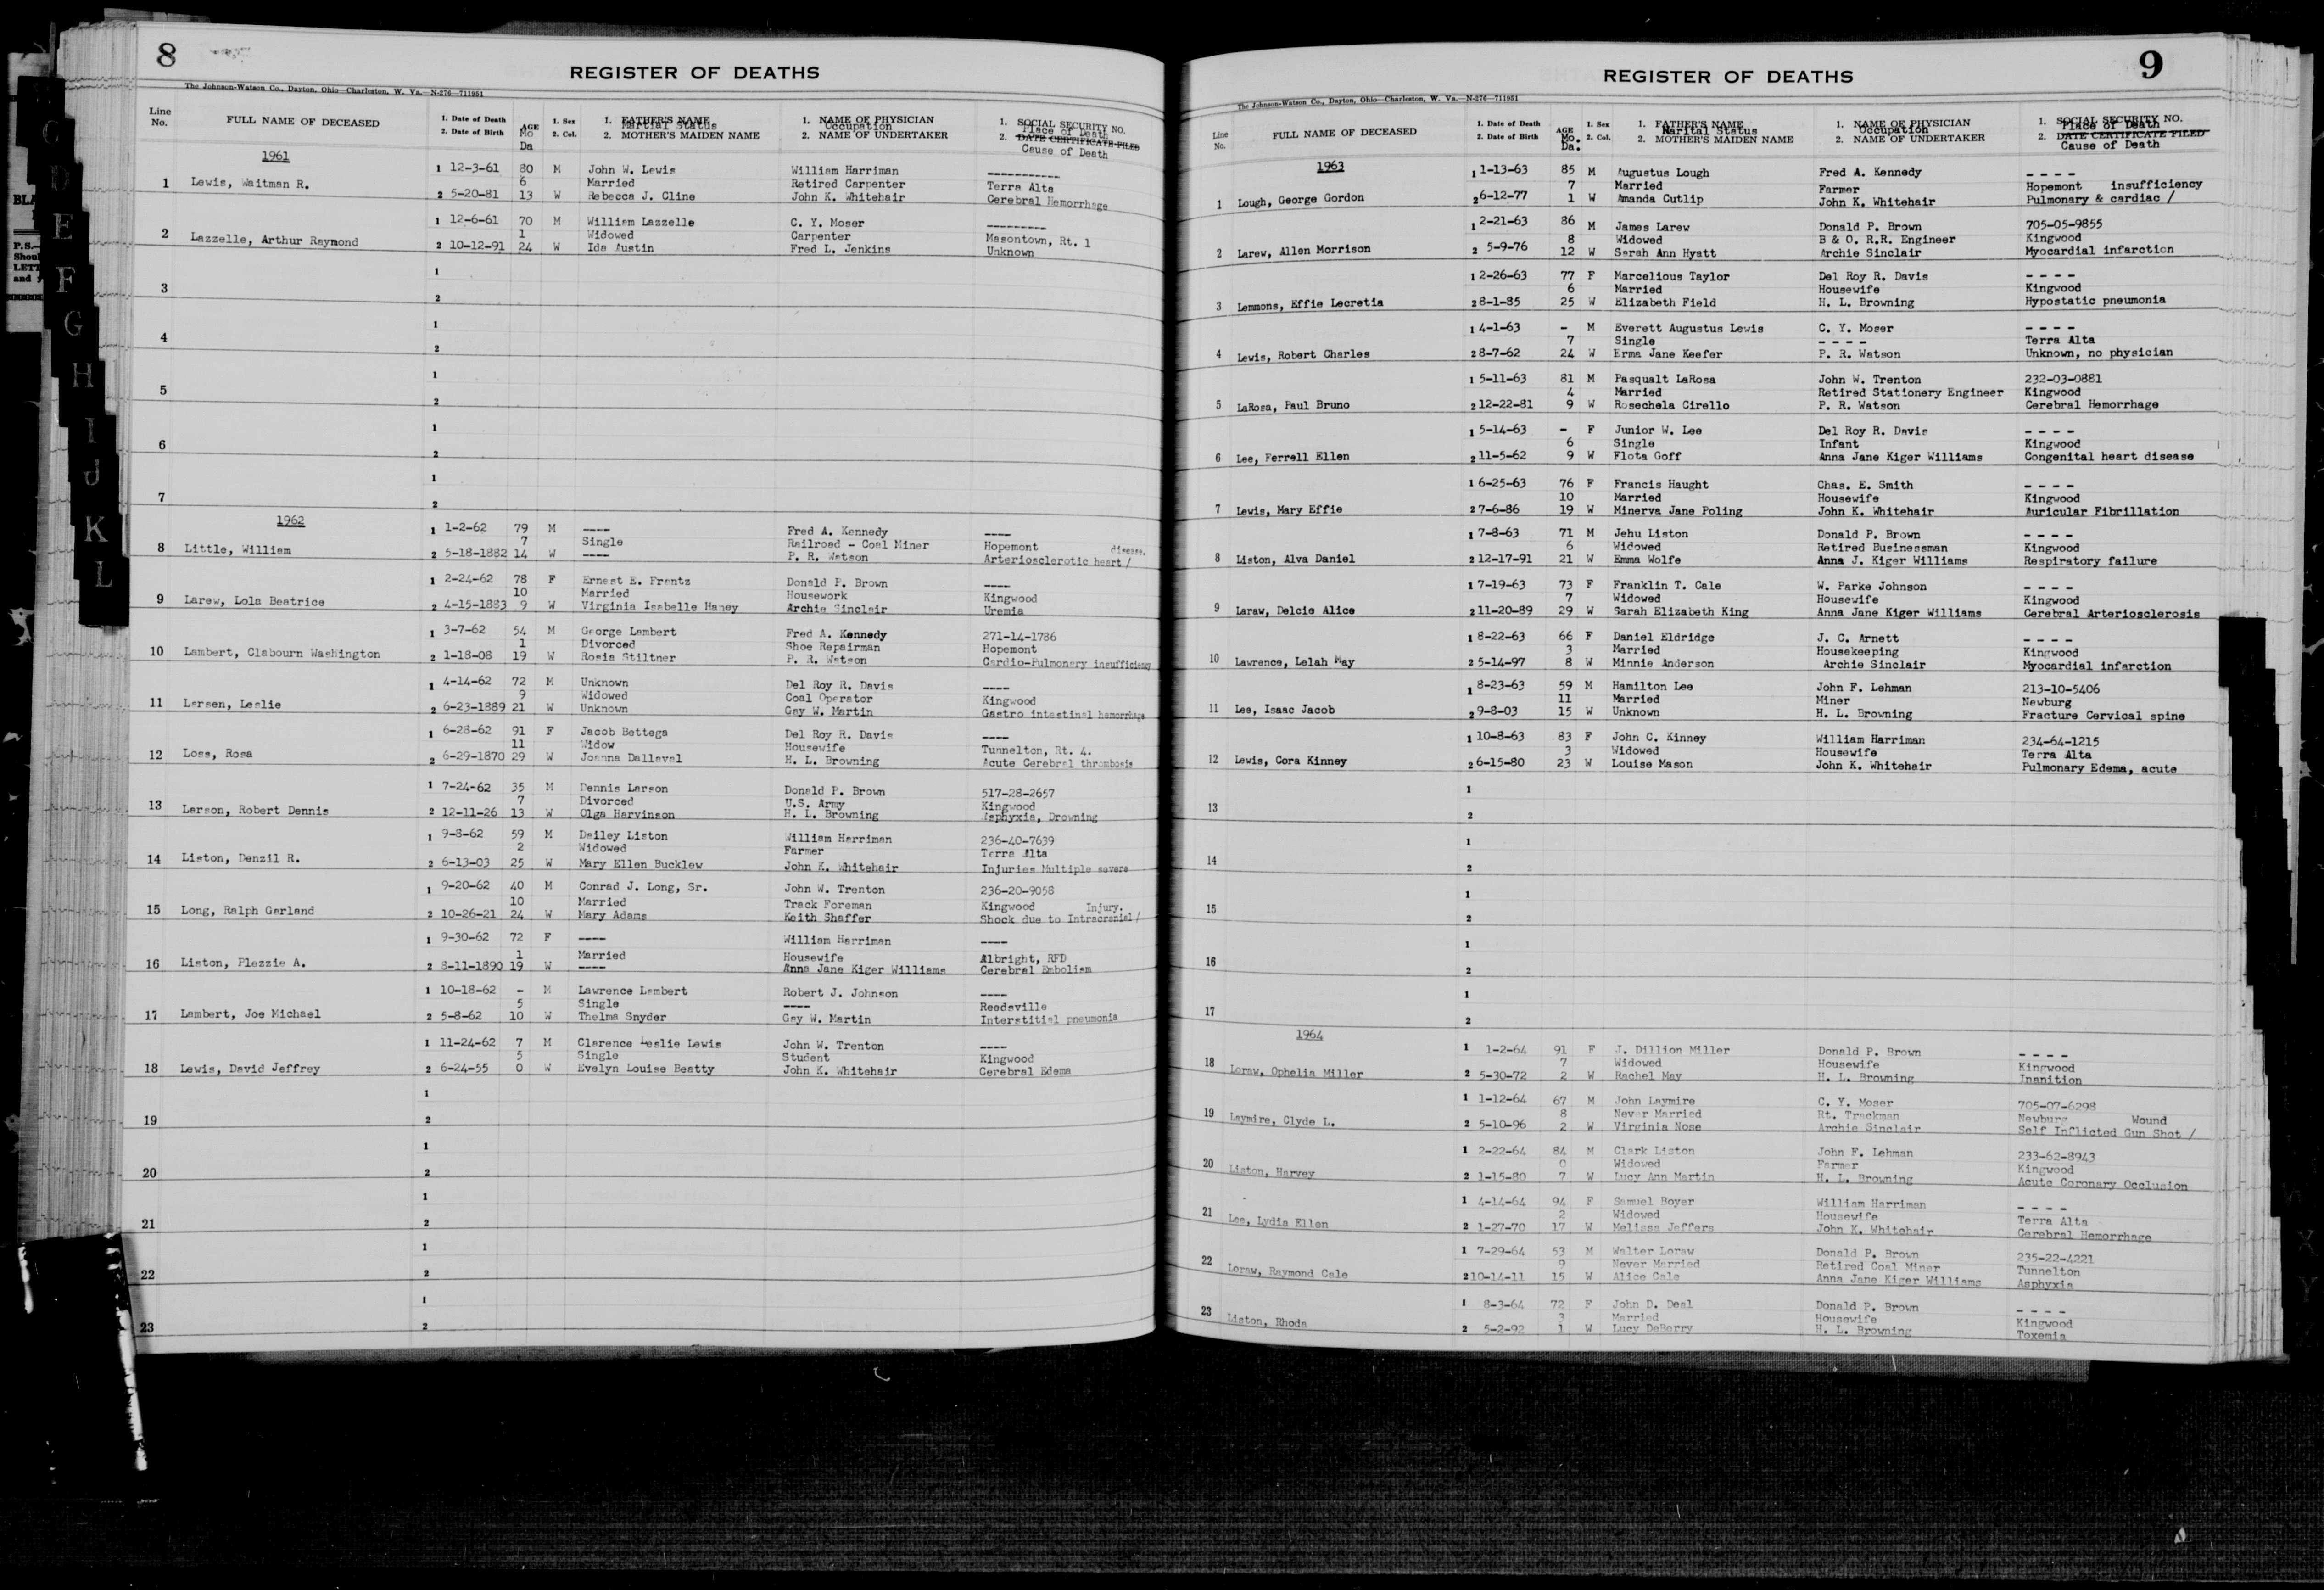 8
REGISTER OF DEATHS
The Johnson-Watson Co., Dayton, Ohio—Charleston, W. Va.—N-276—711951
Line No. FULL NAME OF DECEASED 1. Date of Death 2. Date of Birth AGE Mo Da 1. Sex 2. Col. 1. FATHER'S NAME Martial Status 2. MOTHER'S MAIDEN NAME 1. NAME OF PHYSICIAN Occupation 2. NAME OF UNDERTAKER 1. SOCIAL SECURITY NO. Place of Death 2. DATE CERTIFICATE FILED Cause of Death
1961
1 12-3-61 80 M John W. Lewis William Harriman ----------
1 Lewis, Waitman R. 6 Married Retired Carpenter Terra Alta
2 5-20-81 13 W Rebecca J. Cline John K. Whitehair Cerebral Hemorrhage
1 12-6-61 70 M William Lazzelle C. Y. Moser ---------
2 Lazzelle, Arthur Raymond 1 Widowed Carpenter Masontown, Rt. 1
2 10-12-91 24 W Ida Austin Fred L. Jenkins Unknown
1
3
2
1
4
2
1
5
2
1
6
2
1
7
2
1962
1 1-2-62 79 M ---- Fred A. Kennedy ----
8 Little, William 7 Single Railroad - Coal Miner Hopemont disease.
2 5-18-1882 14 W ---- P. R. Watson Arteriosclerotic heart /
1 2-24-62 78 F Ernest E. Frentz Donald P. Brown ----
9 Larew, Lola Beatrice 10 Married Housework Kingwood
2 4-15-1883 9 W Virginia Isabelle Haney Archie Sinclair Uremia
1 3-7-62 54 M George Lambert Fred A. Kennedy 271-14-1786
10 Lambert, Clabourn Washington 1 Divorced Shoe Repairman Hopemont
2 1-18-08 19 W Rosia Stiltner P. R. Watson Cardio-Pulmonary insufficiency
1 4-14-62 72 M Unknown Del Roy R. Davis ----
11 Larsen, Leslie 9 Widowed Coal Operator Kingwood
2 6-23-1889 21 W Unknown Gay W. Martin Gastro intestinal hemorrhage
1 6-28-62 91 F Jacob Bettega Del Roy R. Davis ----
12 Loss, Rosa 11 Widow Housewife Tunnelton, Rt. 4.
2 6-29-1870 29 W Joanna Dallaval H. L. Browning Acute Cerebral thrombosis
1 7-24-62 35 M Dennis Larson Donald P. Brown 517-28-2657
13 Larson, Robert Dennis 7 Divorced U.S. Army Kingwood
2 12-11-26 13 W Olga Harvinson H. L. Browning Asphyxia, Drowning
1 9-8-62 59 M Dailey Liston William Harriman 236-40-7639
14 Liston, Denzil R. 2 Widowed Farmer Terra Alta
2 6-13-03 25 W Mary Ellen Bucklew John K. Whitehair Injuries Multiple severe
1 9-20-62 40 M Conrad J. Long, Sr. John W. Trenton 236-20-9058
15 Long, Ralph Garland 10 Married Track Foreman Kingwood Injury.
2 10-26-21 24 W Mary Adams Keith Shaffer Shock due to Intracranial /
1 9-30-62 72 F ---- William Harriman ----
16 Liston, Plezzie A. 1 Married Housewife Albright, RFD
2 8-11-1890 19 W ---- Anna Jane Kiger Williams Cerebral Embolism
1 10-18-62 - M Lawrence Lambert Robert J. Johnson ----
17 Lambert, Joe Michael 5 Single ---- Reedsville
2 5-8-62 10 W Thelma Snyder Gay W. Martin Interstitial pneumonia
1 11-24-62 7 M Clarence Leslie Lewis John W. Trenton ----
18 Lewis, David Jeffrey 5 Single Student Kingwood
2 6-24-55 0 W Evelyn Louise Beatty John K. Whitehair Cerebral Edema
1
19
2
1
20
2
1
21
2
1
22
2
1
23
2
9
REGISTER OF DEATHS
The Johnson-Watson Co., Dayton, Ohio—Charleston, W. Va.—N-276—711951
Line No. FULL NAME OF DECEASED 1. Date of Death 2. Date of Birth AGE Mo. Da. 1. Sex 2. Col. 1. FATHER'S NAME Marital Status 2. MOTHER'S MAIDEN NAME 1. NAME OF PHYSICIAN Occupation 2. NAME OF UNDERTAKER 1. SOCIAL SECURITY NO. Place of Death 2. DATE CERTIFICATE FILED Cause of Death
1963
1 1-13-63 85 M Augustus Lough Fred A. Kennedy - - - -
1 Lough, George Gordon 7 Married Farmer Hopemont insufficiency
2 6-12-77 1 W Amanda Cutlip John K. Whitehair Pulmonary & cardiac /
1 2-21-63 86 M James Larew Donald P. Brown 705-05-9855
2 Larew, Allen Morrison 8 Widowed B & O. R.R. Engineer Kingwood
2 5-9-76 12 W Sarah Ann Hyatt Archie Sinclair Myocardial infarction
1 2-26-63 77 F Marcelious Taylor Del Roy R. Davis - - - -
3 Lemmons, Effie Lecretia 6 Married Housewife Kingwood
2 8-1-85 25 W Elizabeth Field H. L. Browning Hypostatic pneumonia
1 4-1-63 - M Everett Augustus Lewis C. Y. Moser - - - -
4 Lewis, Robert Charles 7 Single - - - - Terra Alta
2 8-7-62 24 W Erma Jane Keefer P. R. Watson Unknown, no physician
1 5-11-63 81 M Pasqualt LaRosa John W. Trenton 232-03-0881
5 LaRosa, Paul Bruno 4 Married Retired Stationery Engineer Kingwood
2 12-22-81 9 W Rosechela Cirello P. R. Watson Cerebral Hemorrhage
1 5-14-63 - F Junior W. Lee Del Roy R. Davis - - - -
6 Lee, Ferrell Ellen 6 Single Infant Kingwood
2 11-5-62 9 W Flota Goff Anna Jane Kiger Williams Congenital heart disease
1 6-25-63 76 F Francis Haught Chas. E. Smith - - - -
7 Lewis, Mary Effie 10 Married Housewife Kingwood
2 7-6-86 19 W Minerva Jane Poling John K. Whitehair Auricular Fibrillation
1 7-8-63 71 M Jehu Liston Donald P. Brown - - - -
8 Liston, Alva Daniel 6 Widowed Retired Businessman Kingwood
2 12-17-91 21 W Emma Wolfe Anna J. Kiger Williams Respiratory failure
1 7-19-63 73 F Franklin T. Cale W. Parke Johnson - - - -
9 Laraw, Delcie Alice 7 Widowed Housewife Kingwood
2 11-20-89 29 W Sarah Elizabeth King Anna Jane Kiger Williams Cerebral Arteriosclerosis
1 8-22-63 66 F Daniel Eldridge J. C. Arnett - - - -
10 Lawrence, Lelah May 3 Married Housekeeping Kingwood
2 5-14-97 8 W Minnie Anderson Archie Sinclair Myocardial infarction
1 8-23-63 59 M Hamilton Lee John F. Lehman 213-10-5406
11 Lee, Isaac Jacob 11 Married Miner Newburg
2 9-8-03 15 W Unknown H. L. Browning Fracture Cervical spine
1 10-8-63 83 F John C. Kinney William Harriman 234-64-1215
12 Lewis, Cora Kinney 3 Widowed Housewife Terra Alta
2 6-15-80 23 W Louise Mason John K. Whitehair Pulmonary Edema, acute
1
13
2
1
14
2
1
15
2
1
16
2
1
17
2
1964
1 1-2-64 91 F J. Dillion Miller Donald P. Brown - - - -
18 Loraw, Ophelia Miller 7 Widowed Housewife Kingwood
2 5-30-72 2 W Rachel May H. L. Browning Inanition
1 1-12-64 67 M John Laymire C. Y. Moser 705-07-6298
19 Laymire, Clyde L. 8 Never Married Rt. Trackman Newburg Wound
2 5-10-96 2 W Virginia Nose Archie Sinclair Self Inflicted Gun Shot /
1 2-22-64 84 M Clark Liston John F. Lehman 233-62-8943
20 Liston, Harvey 0 Widowed Farmer Kingwood
2 1-15-80 7 W Lucy Ann Martin H. L. Browning Acute Coronary Occlusion
1 4-14-64 94 F Samuel Boyer William Harriman - - - -
21 Lee, Lydia Ellen 2 Widowed Housewife Terra Alta
2 1-27-70 17 W Melissa Jeffers John K. Whitehair Cerebral Hemorrhage
1 7-29-64 53 M Walter Loraw Donald P. Brown 235-22-4221
22 Loraw, Raymond Cale 9 Never Married Retired Coal Miner Tunnelton
2 10-14-11 15 W Alice Cale Anna Jane Kiger Williams Asphyxia
1 8-3-64 72 F John D. Deal Donald P. Brown - - - -
23 Liston, Rhoda 3 Married Housewife Kingwood
2 5-2-92 1 W Lucy DeBerry H. L. Browning Toxemia
C
D
E
F
G
H
I
J
K
L